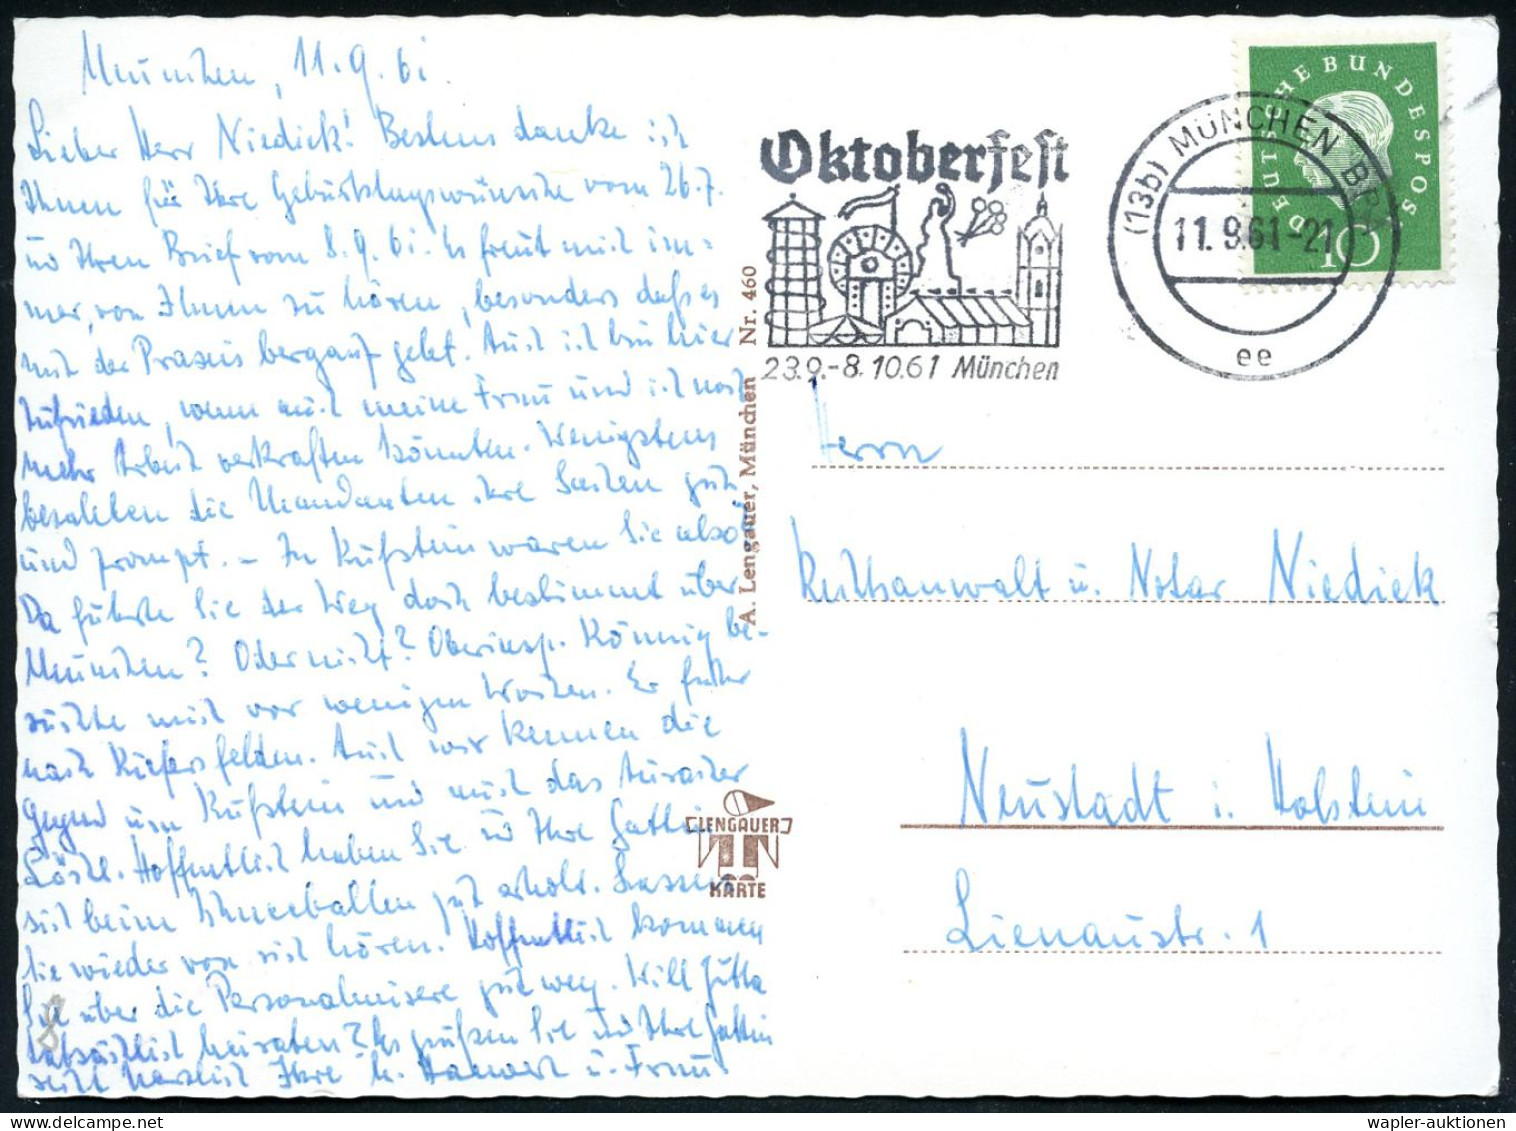 München, 11.9.61.
Lieber Herr Niediek! Bestens danke ich
Ihnen für Ihre Geburtstagswünsche vom 26.7.
und Ihren Brief vom 8.9.61. Es freut mich im=
mer, von Ihnen zu hören, besonders daß es
mit der Praxis bergauf geht. Auch ich bin hier
zufrieden, wenn auch meine Frau und ich noch
mehr Arbeit verkraften könnten. Wenigstens
bezahlen die Mandanten ihre Sachen gut
und prompt. – In Kufstein waren Sie also?
Da führte Sie der Weg doch bestimmt über
München? Oder nicht? Oberinsp. König be-
suchte mich vor wenigen Wochen. Er fuhr
nach Kiefersfelden. Auch wir kennen die
Gegend um Kufstein und auch das
Hoffentlich haben Sie und Ihre Gattin
sich beim gut erholt. Lassen
Sie wieder von sich hören. Hoffentlich kommen
Sie über die Personalmisere gut weg. Will Jutta
tatsächlich heiraten? Es grüßen Sie und Ihre Gattin
recht herzlich Ihre u. Frau
Oktoberfest
23.9.-8.10.61 München
(13b) MÜNCHEN BP
11.9.61-21
ee
DEUTSCHE BUNDESPOST
10
A. Lengauer, München Nr. 460
LENGAUER
KARTE
Herrn
Rechtsanwalt u. Notar Niediek
Neustadt i. Holstein
Lienaustr. 1
wapler-auktionen